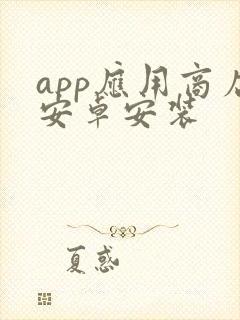 app应用商店
安卓安装
夏惑